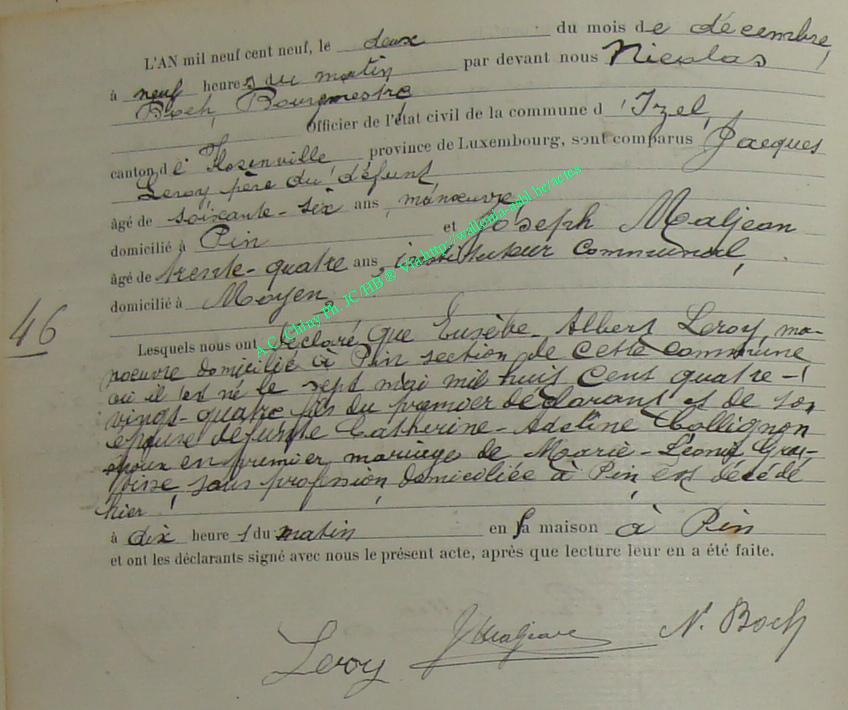 L'AN mil neuf cent neuf, le deux du mois de décembre,
à neuf heures du matin par devant nous Nicolas
Boch, Bourgmestre
Officier de l'état civil de la commune d'Izel,
canton de Florenville province de Luxembourg, sont comparus Jacques
Leroy père du défunt
âgé de soixante-six ans, manœuvre
domicilié à Pin et Joseph Maljean
âgé de trente-quatre ans, instituteur communal,
domicilié à Moyen,
46
Lesquels nous ont déclaré que Eusèbe-Albert Leroy, ma-
nœuvre domicilié à Pin section de cette commune
où il est né le sept mai mil huit cent quatre-
vingt-quatre fils du premier déclarant et de son
épouse défunte Catherine-Adeline Collignon
époux en premier mariage de Marie-Léonie
sans profession, domiciliée à Pin, est décédé
hier
à dix heures du matin en sa maison à Pin
et ont les déclarants signé avec nous le présent acte, après que lecture leur en a été faite.
Leroy JMaljean N. Boch
A.C. Chiny Ph. JC HB ® Via http://wallonia-asbl.be/actes